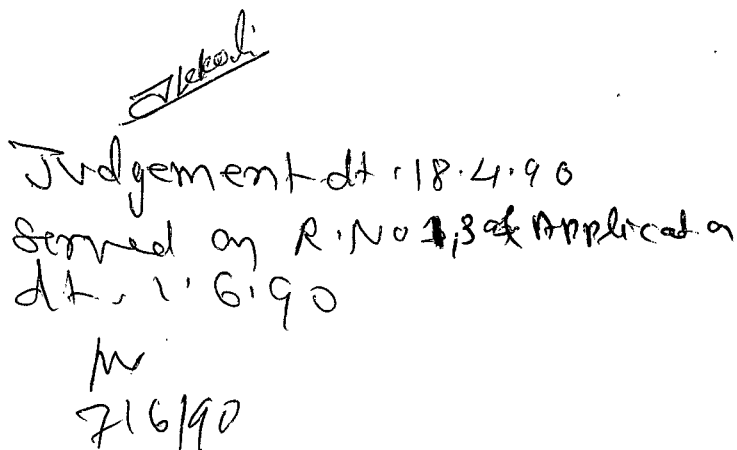 Judgement dt. 18.4.90
Served on R.No 1,3 & Applicat
dt. 1.6.90
7/6/90